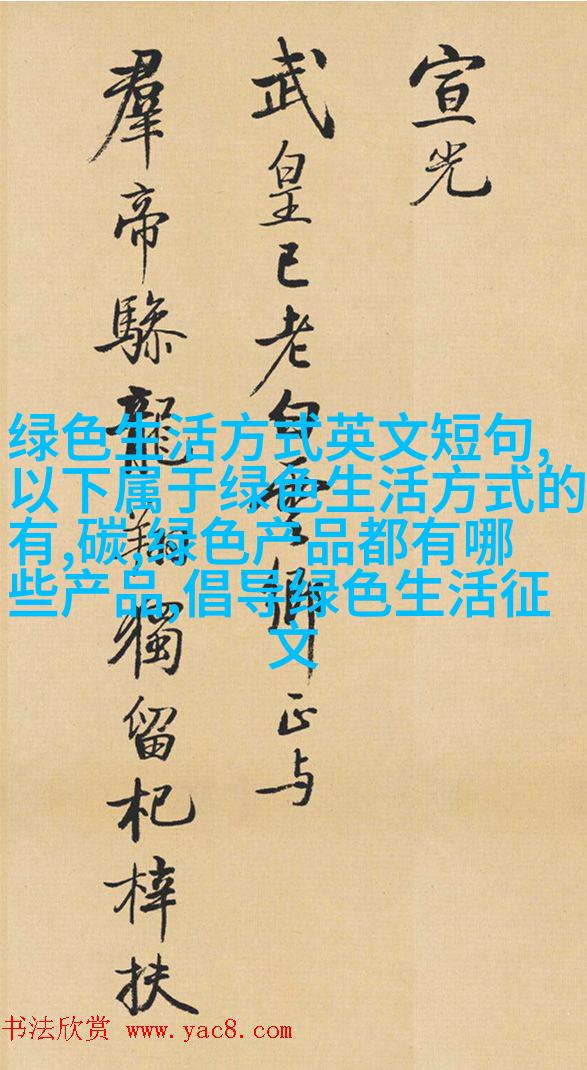 宣光
武皇已老白雲鄉正与
羣帝驂龍翔獨留杞梓扶
绿色生活方式英文短句,
以下属于绿色生活方式的
有,碳,绿色产品都有哪
些产品,倡导绿色生活征
文
书法欣赏 www.yac8.com